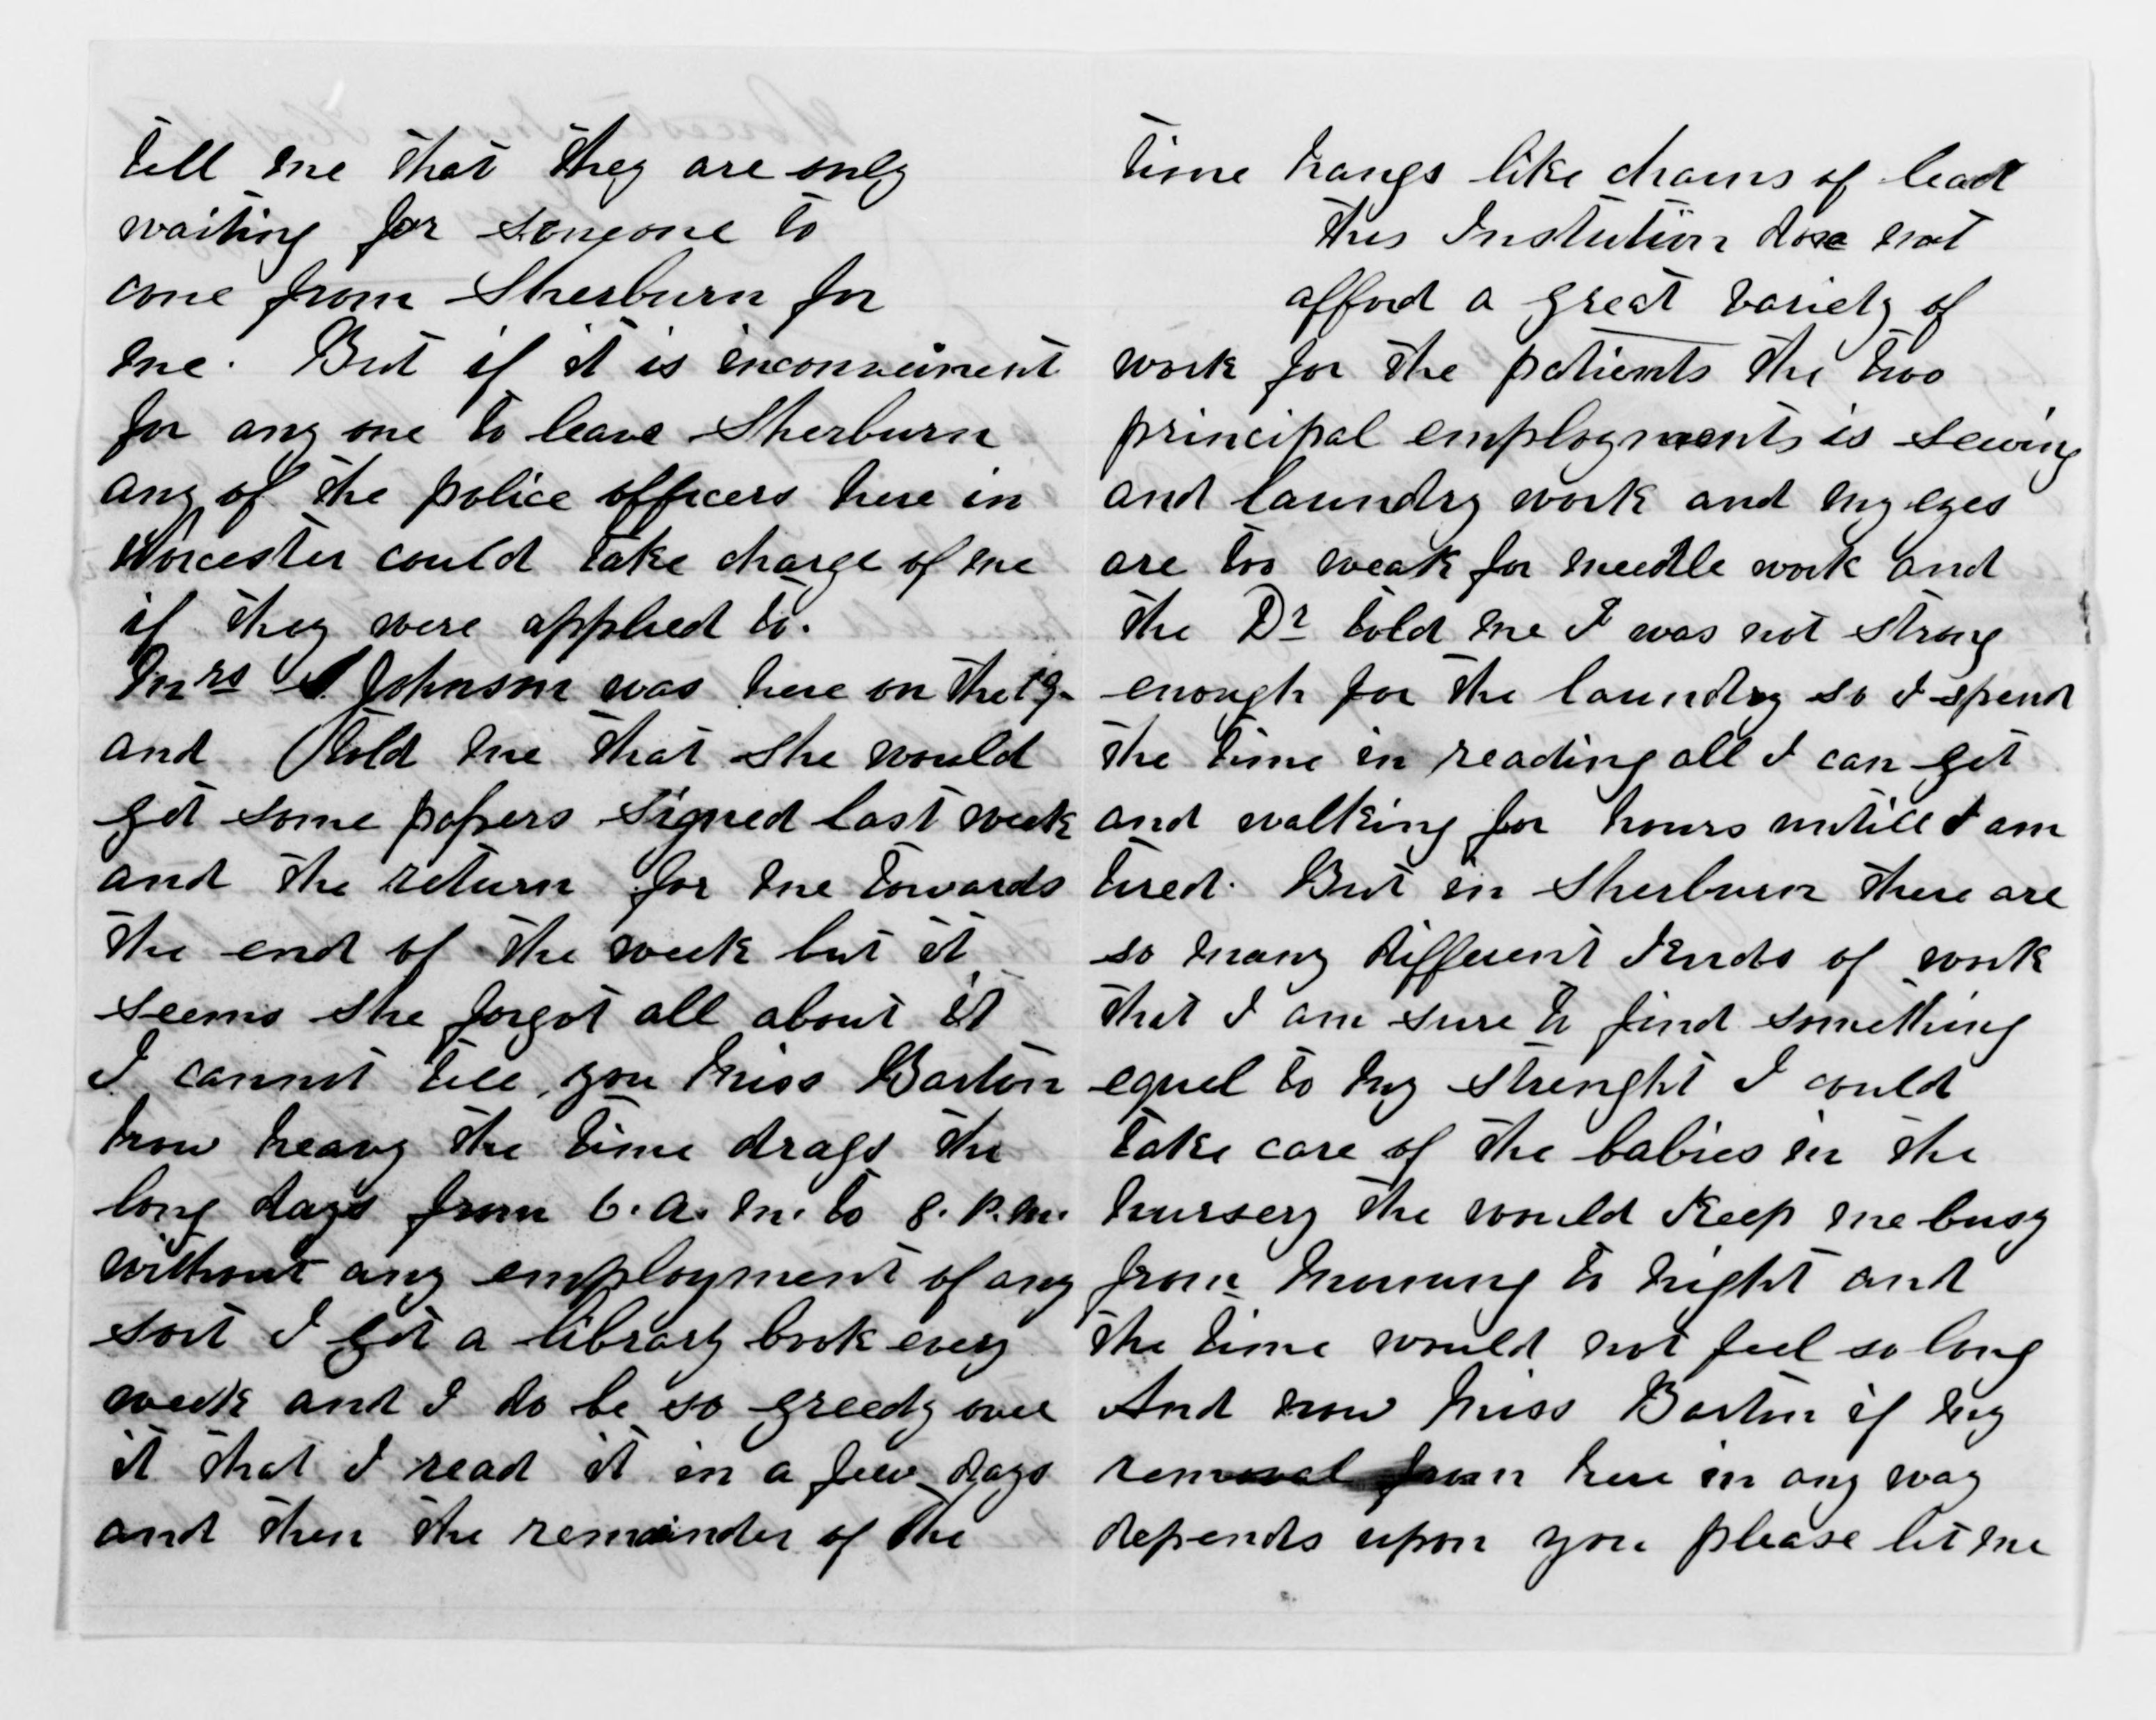 tell me that they are only
waiting for someone to
come from Sherburn for
me. But if it is inconveinent
for any one to leave Sherburn
any of the police officers here in
Worcester could take charge of me
if they were applied to.
Mrs Johnson was here on the 19-
and told me that she would
get some papers signed last week
and the return for me towards
the end of the week but it
seems she forgot all about it
I cannot tell you Miss Barton
how heavy the time drags the
long days from 6. a. m. to 8. p.m.
without any employment of any
sort I get a library book every
week and I do be so greedy over
it that I read it in a few days
and then the remainder of the
time hangs like chains of lead
this Instution dose not
afford a great variety of
work for the patients the two
principal employments is sewing
and laundry work and my eyes
are too weak for needle work and
the Dr told me I was not strong
enough for the laundry so I spend
the time in reading all I can get
and walking for hours untill I am
tired. But in Sherburn there are
so many different kinds of work
that I am sure to find something
equel to my strenght I could
take care of the babies in the
nursery the would keep me busy
from morning to night and
the time would not feel so long
And now Miss Barton if my
removal from here in any way
depends upon you please let me